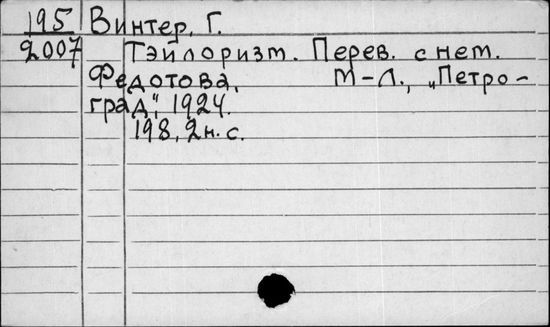 195 Винтер, Г.
2007 Тэйлоризм. Перев. с нем.
Федотова. М-Л., „Петро-
град", 1924.
198, 2 н. с.